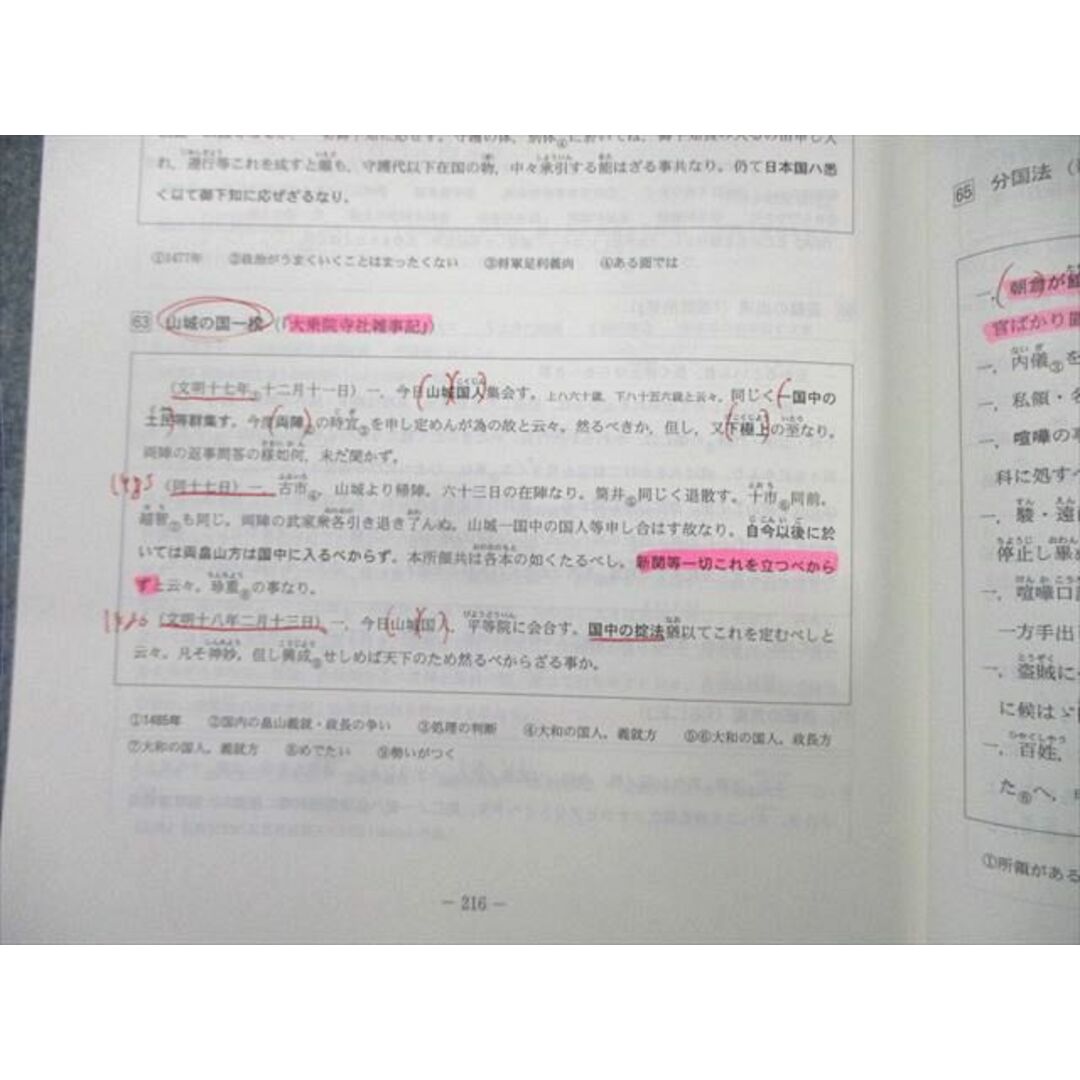 れ,遵行等これを成すと雖も,守護代以下在国の物,中々承引する能はざる事共なり。仍て日本国ハ悉
く以て御下知に応ぜざるなり。
①1477年 ②政治がうまくいくことはまったくない ③将軍足利義尚 ④ある面では
63 山城の国一揆(『大乗院寺社雑事記』)
(文明十七年①十二月十一日)一,今日山城国人集会す。上ハ六十歳,下ハ十五六歳と云々。同じく一国中の
土民等群集す。今度両陣②の時宜③を申し定めんが為の故と云々。然るべきか,但し,又下極上の至なり。
両陣の返事問答の様如何,未だ聞かず。
1485 (同十七日)一,古市④,山城より帰陣。六十三日の在陣なり。筒井⑤同じく退散す。十市⑥同前。
越智⑦も同じ。両陣の武家衆各引き退き了んぬ。山城一国中の国人等申し合はす故なり。自今以後に於
いては両畠山方は国中に入るべからず。本所領共は各本の如くたるべし。新関等一切これを立つべから
ずと云々。珍重⑧の事なり。
1486 (文明十八年二月十三日)一,今日山城国人,平等院に会合す。国中の掟法猶以てこれを定むべしと
云々。凡そ神妙,但し興成⑨せしめば天下のため然るべからざる事か。
①1485年 ②国内の畠山義就・政長の争い ③処理の判断 ④大和の国人。義就方 ⑤⑥大和の国人。政長方
⑦大和の国人。義就方 ⑧めでたい ⑨勢いがつく
- 216 -
65 分国法
一,朝倉が館
官ばかり置
一,内儀③を
一,私領・名
一,喧嘩の事
科に処すべ
一,駿・遠
停止し畢ぬ
一,喧嘩口論
一方手出
一,盗賊に
に候はゞ
一,百姓,
た⑥へ,
①所領がある